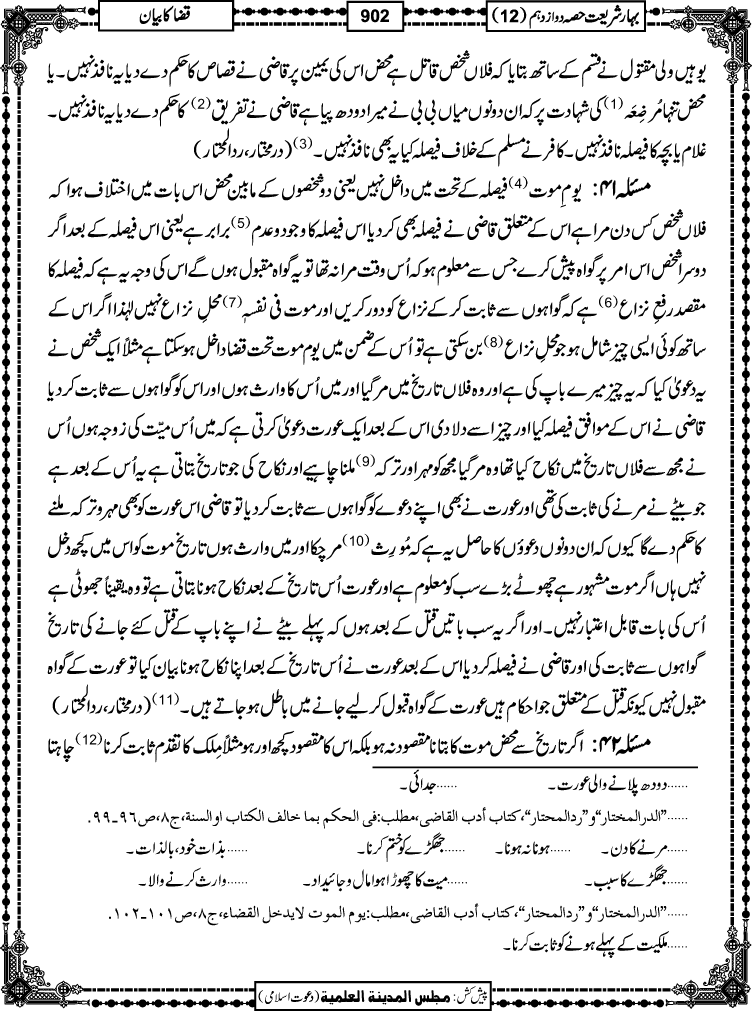 بہارشریعت حصہ دوازدہم (12)
902
قضا کا بیان
یوہیں ولی مقتول نے قسم کے ساتھ بتایا کہ فلاں شخص قاتل ہے محض اس کی یمین پر قاضی نے قصاص کا حکم دے دیا یہ نافذ نہیں۔ یا
محض تنہا مُرضِعَہ (1) کی شہادت پر کہ ان دونوں میاں بی بی نے میرا دودھ پیا ہے قاضی نے تفریق (2) کا حکم دے دیا یہ نافذ نہیں۔
غلام یا بچہ کا فیصلہ نافذ نہیں۔ کافر نے مسلم کے خلاف فیصلہ کیا یہ بھی نافذ نہیں۔ (3) (درمختار، ردالمحتار)
مسئلہ ۴۱: یومِ موت (4) فیصلہ کے تحت میں داخل نہیں یعنی دو شخصوں کے مابین محض اس بات میں اختلاف ہوا کہ
فلاں شخص کس دن مرا ہے اس کے متعلق قاضی نے فیصلہ بھی کر دیا اس فیصلہ کا وجود و عدم (5) برابر ہے یعنی اس فیصلہ کے بعد اگر
دوسرا شخص اس امر پر گواہ پیش کرے جس سے معلوم ہو کہ اُس وقت مرا نہ تھا تو یہ گواہ مقبول ہوں گے اس کی وجہ یہ ہے کہ فیصلہ کا
مقصد رفعِ نزاع (6) ہے کہ گواہوں سے ثابت کر کے نزاع کو دور کریں اور موت فی نفسہٖ (7) محلِ نزاع نہیں لہٰذا اگر اس کے
ساتھ کوئی ایسی چیز شامل ہو جو محلِ نزاع (8) بن سکتی ہے تو اُس کے ضمن میں یوم موت تحت قضا داخل ہو سکتا ہے مثلاً ایک شخص نے
یہ دعویٰ کیا کہ یہ چیز میرے باپ کی ہے اور وہ فلاں تاریخ میں مر گیا اور میں اُس کا وارث ہوں اور اس کو گواہوں سے ثابت کر دیا
قاضی نے اس کے موافق فیصلہ کیا اور چیز اسے دلا دی اس کے بعد ایک عورت دعویٰ کرتی ہے کہ میں اُس میّت کی زوجہ ہوں اُس
نے مجھ سے فلاں تاریخ میں نکاح کیا تھا وہ مر گیا مجھ کو مہر اور ترکہ (9) ملنا چاہیے اور نکاح کی جو تاریخ بتاتی ہے یہ اُس کے بعد ہے
جو بیٹے نے مرنے کی ثابت کی تھی اور عورت نے بھی اپنے دعوے کو گواہوں سے ثابت کر دیا تو قاضی اس عورت کو بھی مہر و ترکہ ملنے
کا حکم دے گا کیوں کہ ان دونوں دعوؤں کا حاصل یہ ہے کہ مُورِث (10) مر چکا اور میں وارث ہوں تاریخ موت کو اس میں کچھ دخل
نہیں ہاں اگر موت مشہور ہے چھوٹے بڑے سب کو معلوم ہے اور عورت اُس تاریخ کے بعد نکاح ہونا بتاتی ہے تو وہ یقیناً جھوٹی ہے
اُس کی بات قابل اعتبار نہیں۔ اور اگر یہ سب باتیں قتل کے بعد ہوں کہ پہلے بیٹے نے اپنے باپ کے قتل کئے جانے کی تاریخ
گواہوں سے ثابت کی اور قاضی نے فیصلہ کر دیا اس کے بعد عورت نے اُس تاریخ کے بعد اپنا نکاح ہونا بیان کیا تو عورت کے گواہ
مقبول نہیں کیونکہ قتل کے متعلق جو احکام ہیں عورت کے گواہ قبول کر لیے جانے میں باطل ہو جاتے ہیں۔ (11) (درمختار، ردالمحتار)
مسئلہ ۴۲: اگر تاریخ سے محض موت کا بتانا مقصود نہ ہو بلکہ اس کا مقصود کچھ اور ہو مثلاً مِلک کا تقدم ثابت کرنا (12) چاہتا
......دودھ پلانے والی عورت۔ ......جدائی۔
......”الدرالمختار“ و ”ردالمحتار“، کتاب أدب القاضی، مطلب: فی الحکم بما خالف الکتاب اوالسنۃ، ج۸، ص۹۶۔۹۹.
......مرنے کا دن۔ ......ہونا نہ ہونا۔ ......جھگڑے کو ختم کرنا۔ ......بذات خود، بالذات۔
......جھگڑے کا سبب۔ ......میت کا چھوڑا ہوا مال و جائیداد۔ ......وارث کرنے والا۔
......”الدرالمختار“ و ”ردالمحتار“، کتاب أدب القاضی، مطلب: یوم الموت لایدخل القضاء، ج۸، ص۱۰۱۔۱۰۲.
......ملکیت کے پہلے ہونے کو ثابت کرنا۔
پیش کش: مجلس المدینۃ العلمیۃ (دعوت اسلامی)